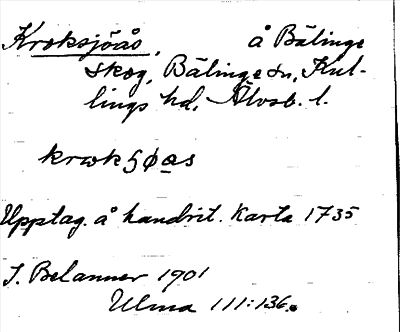 Kroksjöås, å Bälinge
skog, Bälinge sn, Kul-
lings hd, Älvsb. l.
krωk5ɸas
Upptag. å handrit. Karta 1735
J. Belanner 1901
Ulma 111:136.